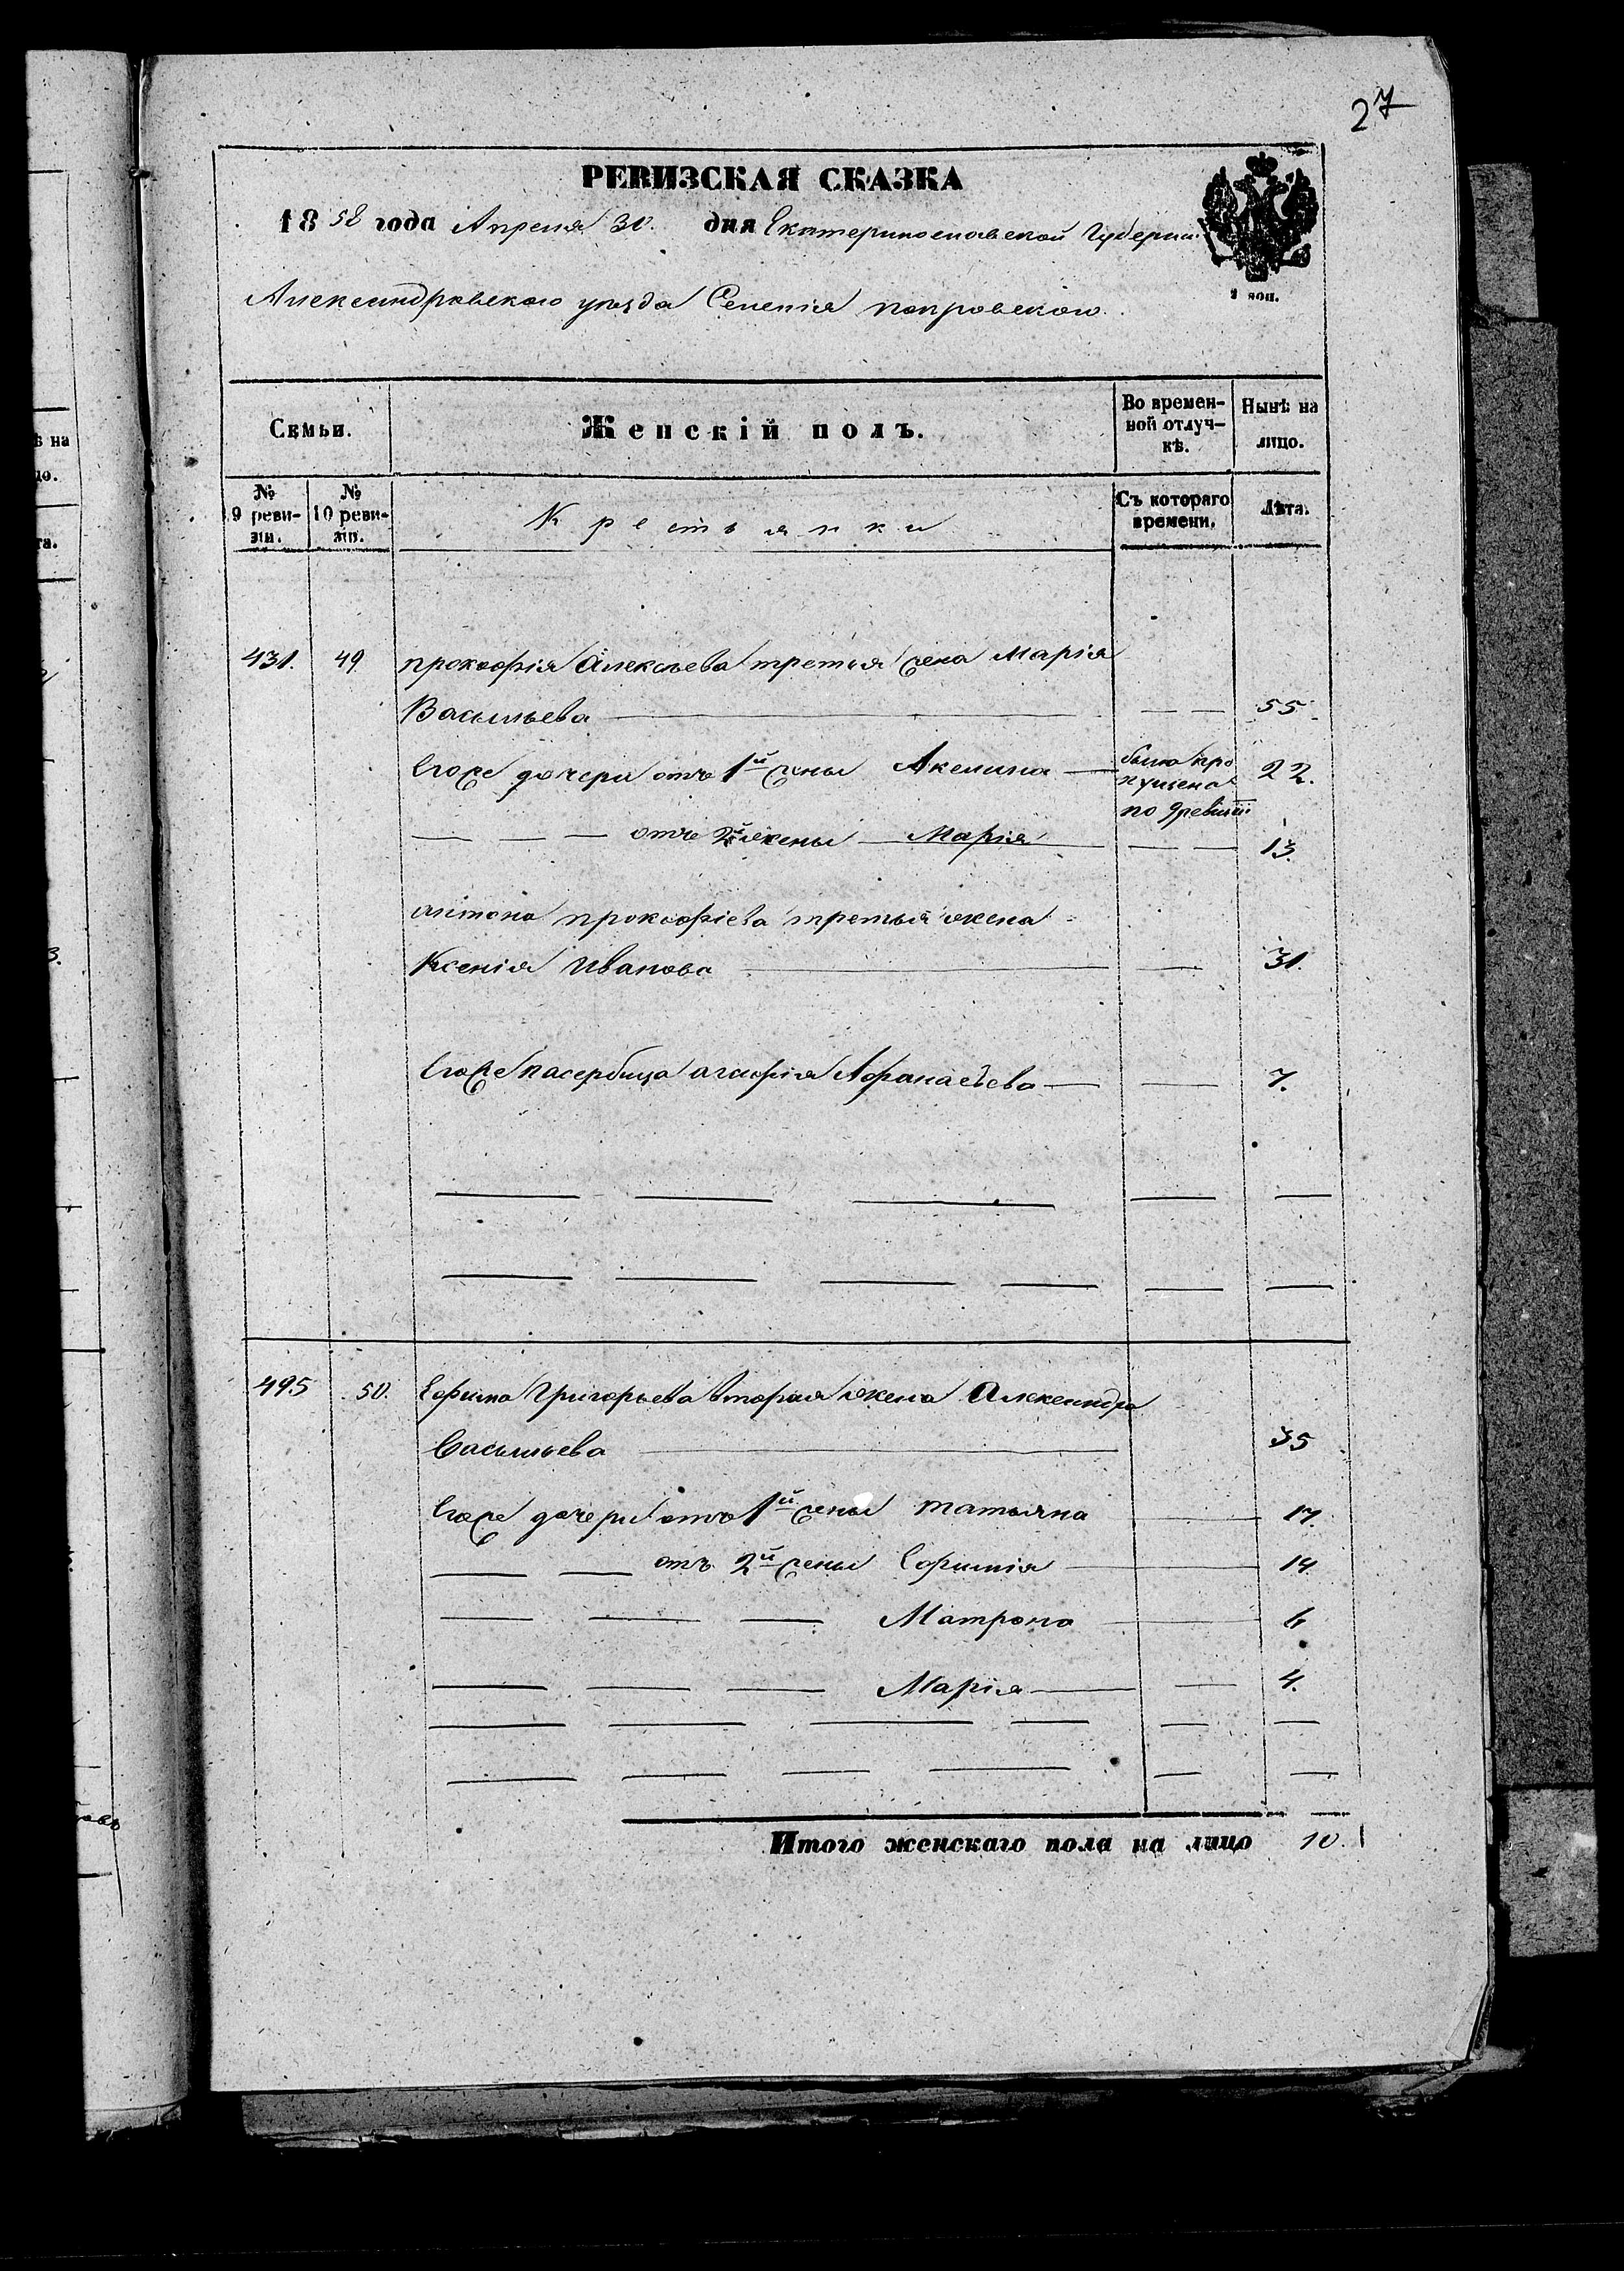 27
РЕВИЗСКАЯ СКАЗКА
1858 года Апреля 30. дня Екатеринославской Губерніи
Александровскаго уѣзда Селенія покровскаго.
1 коп.
Семьи. Женскій полъ. Во времен-ной отлуч-кѣ. Нынѣ на лицо.
№ 9 реви-зіи. № 10 реви-зіи. Крестьянки Съ котораго времени. Лѣта.
431. 49 прокофія Алексѣева третья жена Марія
Васильева 55
Егоже дочери отъ 1й жены Акелина была про 22.
пущена
по 9 ревизіи
отъ 2й жены Марія 13.
антона прокофіева третья жена
Ксенія Иванова 31.
Егоже пасербица Афанасьева 7.
495 50. Ефима Григорьева вторая жена Александра
Васильева 35
Егоже дочери отъ 1й жены татьяна 17.
отъ 2й жены Ефимія 14
Матрона 6
Марія 4.
Итого женскаго пола на лицо 10.